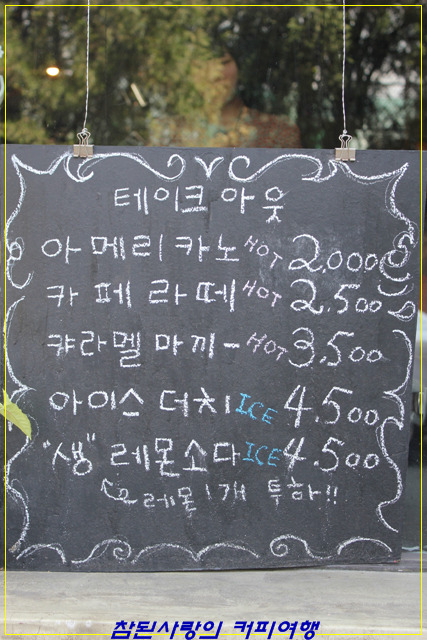 테이크 아웃
아메리카노 HOT 2,000
카페라떼 HOT 2.500
캬라멜마끼- HOT 3,500
아이스 더치 ICE 4.500
"생" 레몬소다 ICE 4.500
레몬 1개 톡하!!
참된사랑의 커피여행